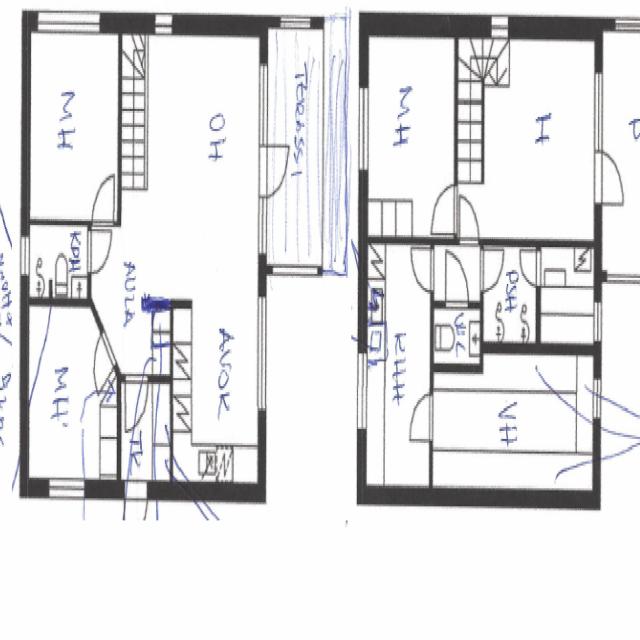 MH
OH
TERASSI
KPH
AULA
MH
TK
AVOK
MH
H
KHH
WC
PSH
VH